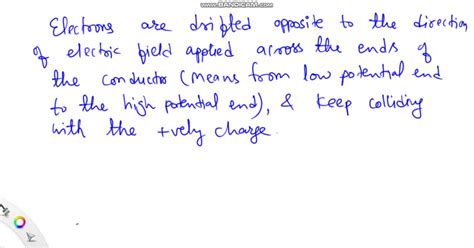 www.BANDICAM.com
Electrons are drifted opposite to the direction
of electric field applied across the ends of
the conductor (means from low potential end
to the high potential end), & keep colliding
with the +vely charge.